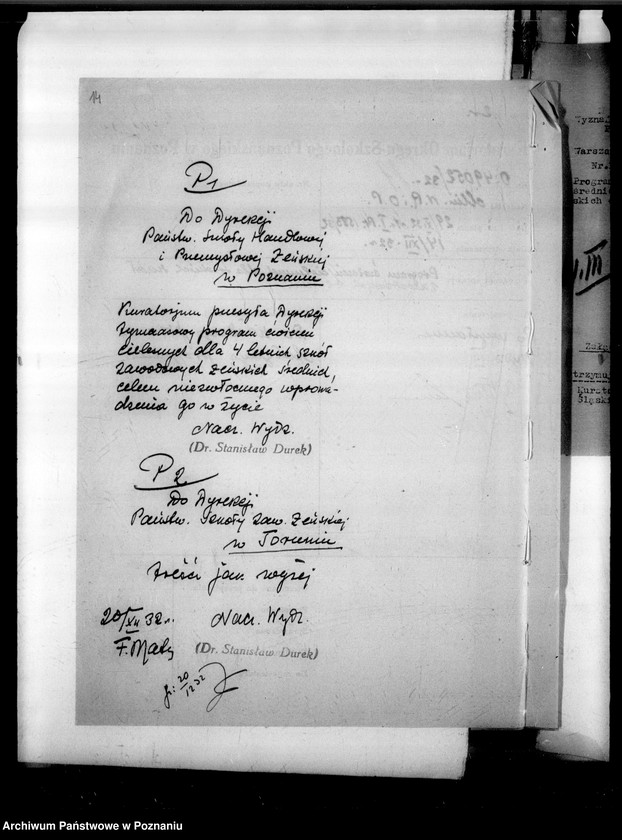 14
P1
Do Dyrekcji
Państw. Szkoły Handlowej
i Przemysłowej Żeńskiej
w Poznaniu
Kuratorjum przesyła Dyrekcji
tymczasowy program ćwiczeń
cielesnych dla 4 letnich szkół
zawodowych żeńskich średnich,
celem niezwłocznego wprowa-
dzenia go w życie
Nacz. Wydz.
(Dr. Stanisław Durek)
P2
Do Dyrekcji
Państw. Szkoły zaw. Żeńskiej
w Toruniu
treść jak wyżej
20/XII 32 r. Nacz. Wydz.
F. Maty
(Dr. Stanisław Durek)
20/12 32
Wyzna
Warsza
Nr.
Program
średnic
skich
III
Załą
trzymu
Kurato
Śląski
Archiwum Państwowe w Poznaniu